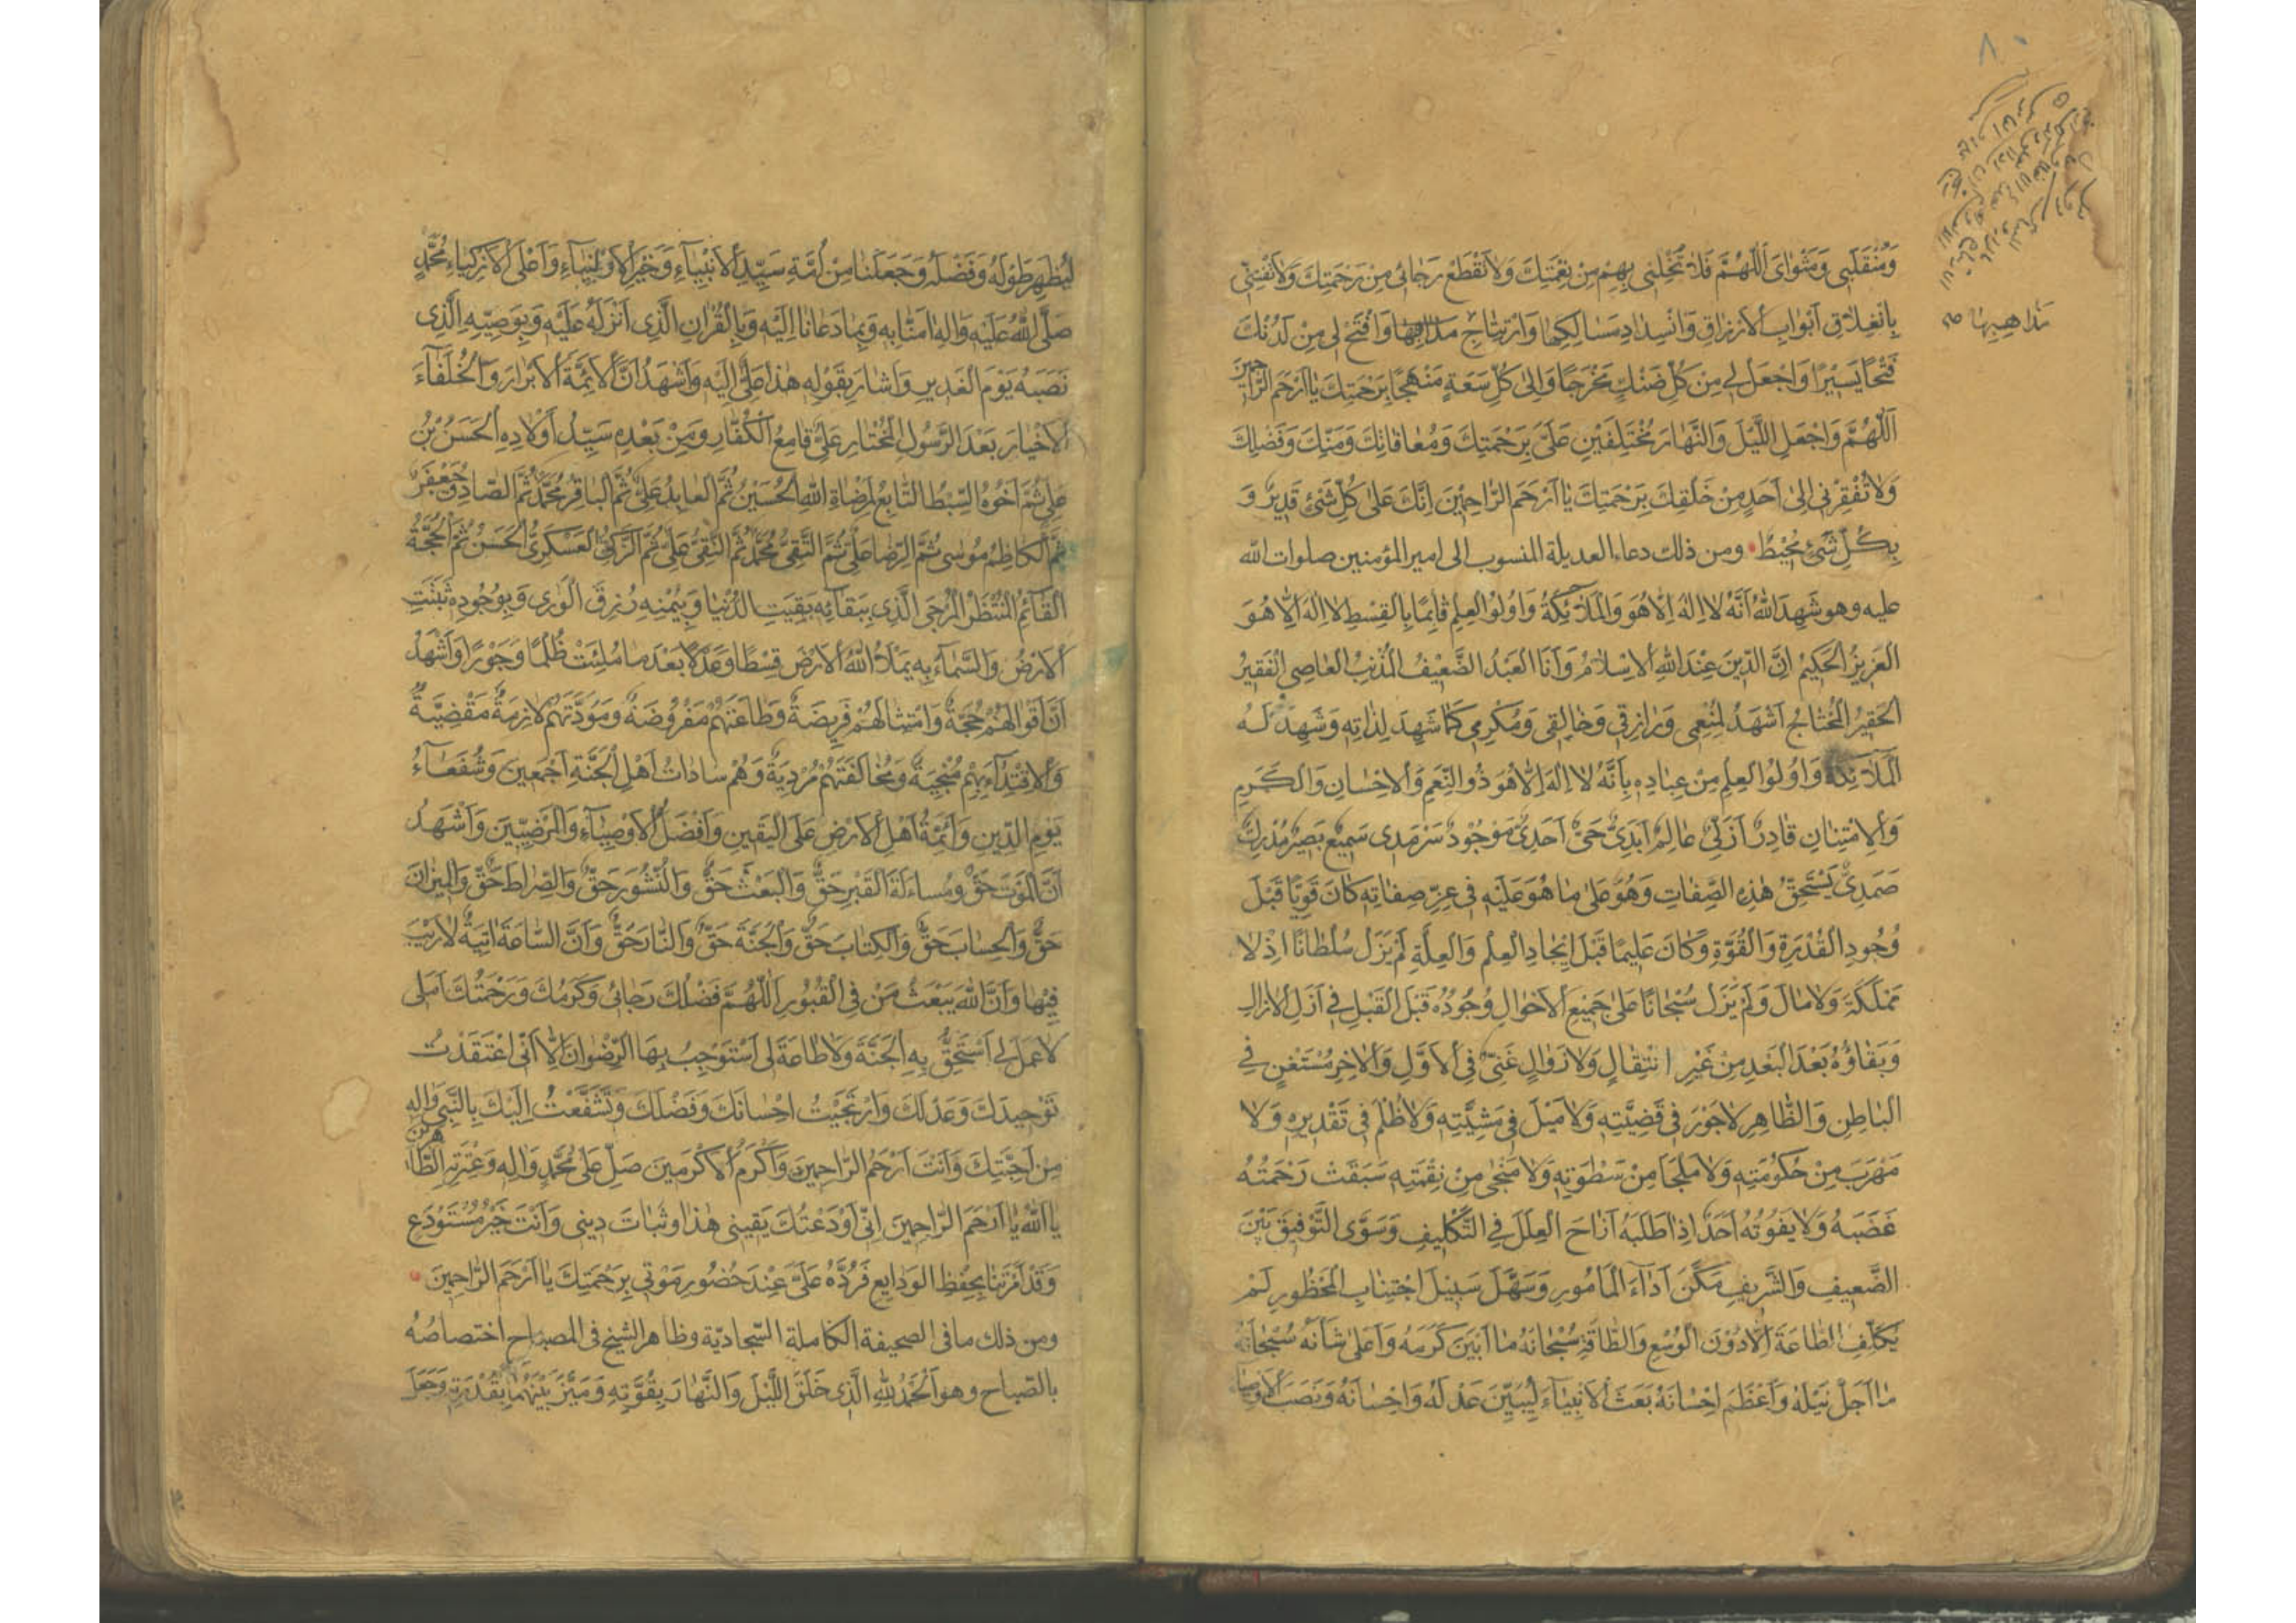 ٨٠
مذاهبها صح
وَمُنْقَلَبِي وَمَثْوَايَ اَللّٰهُمَّ فَلَا تُخْلِنِي بِهِمْ مِنْ نِعْمَتِكَ وَلَا تَقْطَعْ رَجَائِي مِنْ رَحْمَتِكَ وَلَا تَفْتِنِّي
بِانْغِلَاقِ اَبْوَابِ الْاَرْزَاقِ وَانْسِدَادِ مَسَالِكِهَا وَارْتِتَاجِ مَذَاهِبِهَا وَافْتَحْ لِي مِنْ لَدُنْكَ
فَتْحًا يَسِيْرًا وَاجْعَلْ لِي مِنْ كُلِّ ضَنْكٍ مَخْرَجًا وَاِلٰى كُلِّ سَعَةٍ مَنْهَجًا بِرَحْمَتِكَ يَا اَرْحَمَ الرَّاحِمِيْنَ
اَللّٰهُمَّ وَاجْعَلِ اللَّيْلَ وَالنَّهَارَ مُخْتَلِفَيْنِ عَلَيَّ بِرَحْمَتِكَ وَمُعَافَاتِكَ وَمَنِّكَ وَفَضْلِكَ
وَلَا تُفْقِرْنِي اِلٰى اَحَدٍ مِنْ خَلْقِكَ بِرَحْمَتِكَ يَا اَرْحَمَ الرَّاحِمِيْنَ اِنَّكَ عَلٰى كُلِّ شَيْءٍ قَدِيْرٌ وَ
بِكُلِّ شَيْءٍ مُحِيْطٌ ومن ذلك دعاء العديلة المنسوب الى امير المؤمنين صلوات الله
عليه وهو شَهِدَ اللّٰهُ اَنَّهُ لَا اِلٰهَ اِلَّا هُوَ وَالْمَلَائِكَةُ وَاُولُوا الْعِلْمِ قَائِمًا بِالْقِسْطِ لَا اِلٰهَ اِلَّا هُوَ
الْعَزِيْزُ الْحَكِيْمُ اِنَّ الدِّيْنَ عِنْدَ اللّٰهِ الْاِسْلَامُ وَاَنَا الْعَبْدُ الضَّعِيْفُ الْمُذْنِبُ الْعَاصِي الْفَقِيْرُ
الْحَقِيْرُ الْمُحْتَاجُ اَشْهَدُ لِمُنْعِمِي وَرَازِقِي وَخَالِقِي وَمُكْرِمِي كَمَا شَهِدَ لِذَاتِهِ وَشَهِدَ لَهُ
الْمَلَائِكَةُ وَاُولُوا الْعِلْمِ مِنْ عِبَادِهِ بِاَنَّهُ لَا اِلٰهَ اِلَّا هُوَ ذُو النِّعَمِ وَالْاِحْسَانِ وَالْكَرَمِ
وَالْاِمْتِنَانِ قَادِرٌ اَزَلِيٌّ عَالِمٌ اَبَدِيٌّ حَيٌّ اَحَدِيٌّ مَوْجُوْدٌ سَرْمَدِي سَمِيْعٌ بَصِيْرٌ مُدْرِكٌ
صَمَدِيٌّ يَسْتَحِقُّ هٰذِهِ الصِّفَاتِ وَهُوَ عَلٰى مَا هُوَ عَلَيْهِ فِي عِزِّ صِفَاتِهِ كَانَ قَوِيًّا قَبْلَ
وُجُودِ الْقُدْرَةِ وَالْقُوَّةِ وَكَانَ عَلِيْمًا قَبْلَ اِيْجَادِ الْعِلْمِ وَالْعِلَّةِ لَمْ يَزَلْ سُلْطَانًا اِذْ لَا
مَمْلَكَةَ وَلَا مَالَ وَلَمْ يَزَلْ سُبْحَانًا عَلٰى جَمِيْعِ الْاَحْوَالِ وُجُوْدُهُ قَبْلَ الْقَبْلِ فِي اَزَلِ الْاٰزَالِ
وَبَقَاؤُهُ بَعْدَ الْبَعْدِ مِنْ غَيْرِ انْتِقَالٍ وَلَا زَوَالٍ غَنِيٌّ فِي الْاَوَّلِ وَالْاٰخِرِ مُسْتَغْنٍ فِي
الْبَاطِنِ وَالظَّاهِرِ لَا جَوْرَ فِي قَضِيَّتِهِ وَلَا مَيْلَ فِي مَشِيَّتِهِ وَلَا ظُلْمَ فِي تَقْدِيْرِهِ وَلَا
مَهْرَبَ مِنْ حُكُوْمَتِهِ وَلَا مَلْجَأَ مِنْ سَطْوَتِهِ وَلَا مَنْجٰى مِنْ نِقْمَتِهِ سَبَقَتْ رَحْمَتُهُ
غَضَبَهُ وَلَا يَفُوْتُهُ اَحَدٌ اِذَا طَلَبَهُ اَزَاحَ الْعِلَلَ فِي التَّكْلِيْفِ وَسَوَّى التَّوْفِيْقَ بَيْنَ
الضَّعِيْفِ وَالشَّرِيْفِ مَكَّنَ اَدَاءَ الْمَأْمُورِ وَسَهَّلَ سَبِيْلَ اجْتِنَابِ الْمَحْظُورِ لَمْ
يُكَلِّفِ الطَّاعَةَ اِلَّا دُوْنَ الْوُسْعِ وَالطَّاقَةِ سُبْحَانَهُ مَا اَبْيَنَ كَرَمَهُ وَاَعْلٰى شَأْنَهُ سُبْحَانَهُ
مَا اَجَلَّ نَيْلَهُ وَاَعْظَمَ اِحْسَانَهُ بَعَثَ الْاَنْبِيَاءَ لِيُبَيِّنَ عَدْلَهُ وَاِحْسَانَهُ وَنَصَبَ الْاَوْصِيَاءَ
لِيُظْهِرَ طَوْلَهُ وَفَضْلَهُ وَجَعَلَنَا مِنْ اُمَّةِ سَيِّدِ الْاَنْبِيَاءِ وَخَيْرِ الْاَوْلِيَاءِ وَاَعْلَى الْاَزْكِيَاءِ مُحَمَّدٍ
صَلَّى اللّٰهُ عَلَيْهِ وَاٰلِهِ اٰمَنَّا بِهِ وَبِمَا دَعَانَا اِلَيْهِ وَبِالْقُرْاٰنِ الَّذِي اَنْزَلَهُ عَلَيْهِ وَبِوَصِيِّهِ الَّذِي
نَصَبَهُ يَوْمَ الْغَدِيرِ وَاَشَارَ بِقَوْلِهِ هٰذَا عَلِيٌّ اِلَيْهِ وَاَشْهَدُ اَنَّ الْاَئِمَّةَ الْاَبْرَارَ وَالْخُلَفَاءَ
الْاَخْيَارَ بَعْدَ الرَّسُوْلِ الْمُخْتَارِ عَلِيٌّ قَامِعُ الْكُفَّارِ وَمِنْ بَعْدِهِ سَيِّدُ اَوْلَادِهِ الْحَسَنُ بْنُ
عَلِيٍّ ثُمَّ اَخُوْهُ السِّبْطُ التَّابِعُ لِمَرْضَاةِ اللّٰهِ الْحُسَيْنُ ثُمَّ الْعَابِدُ عَلِيٌّ ثُمَّ الْبَاقِرُ مُحَمَّدٌ ثُمَّ الصَّادِقُ جَعْفَرٌ
ثُمَّ الْكَاظِمُ مُوسٰى ثُمَّ الرِّضَا عَلِيٌّ ثُمَّ التَّقِيُّ مُحَمَّدٌ ثُمَّ النَّقِيُّ عَلِيٌّ ثُمَّ الزَّكِيُّ الْعَسْكَرِيُّ الْحَسَنُ ثُمَّ الْحُجَّةُ
الْقَائِمُ الْمُنْتَظَرُ الْمُرْجَى الَّذِي بِبَقَائِهِ بَقِيَتِ الدُّنْيَا وَبِيُمْنِهِ رُزِقَ الْوَرٰى وَبِوُجُودِهِ ثَبَتَتِ
الْاَرْضُ وَالسَّمَاءُ بِهِ يَمْلَأُ اللّٰهُ الْاَرْضَ قِسْطًا وَعَدْلًا بَعْدَ مَا مُلِئَتْ ظُلْمًا وَجَوْرًا وَاَشْهَدُ
اَنَّ اَقْوَالَهُمْ حُجَّةٌ وَامْتِثَالَهُمْ فَرِيضَةٌ وَطَاعَتَهُمْ مَفْرُوضَةٌ وَمَوَدَّتَهُمْ لَازِمَةٌ مَقْضِيَّةٌ
وَالْاِقْتِدَاءَ بِهِمْ مُنْجِيَةٌ وَمُخَالَفَتَهُمْ مُرْدِيَةٌ وَهُمْ سَادَاتُ اَهْلِ الْجَنَّةِ اَجْمَعِيْنَ وَشُفَعَاءُ
يَوْمِ الدِّيْنِ وَاَئِمَّةُ اَهْلِ الْاَرْضِ عَلَى الْيَقِيْنِ وَاَفْضَلُ الْاَوْصِيَاءِ وَالْمَرْضِيِّيْنَ وَاَشْهَدُ
اَنَّ الْمَوْتَ حَقٌّ وَمُسَاءَلَةَ الْقَبْرِ حَقٌّ وَالْبَعْثَ حَقٌّ وَالنُّشُورَ حَقٌّ وَالصِّرَاطَ حَقٌّ وَالْمِيْزَانَ
حَقٌّ وَالْحِسَابَ حَقٌّ وَالْكِتَابَ حَقٌّ وَالْجَنَّةَ حَقٌّ وَالنَّارَ حَقٌّ وَاَنَّ السَّاعَةَ اٰتِيَةٌ لَا رَيْبَ
فِيْهَا وَاَنَّ اللّٰهَ يَبْعَثُ مَنْ فِي الْقُبُوْرِ اَللّٰهُمَّ فَضْلُكَ رَجَائِي وَكَرَمُكَ وَرَحْمَتُكَ اَمَلِي
لَا عَمَلَ لِي اَسْتَحِقُّ بِهِ الْجَنَّةَ وَلَا طَاعَةَ لِي اَسْتَوْجِبُ بِهَا الرِّضْوَانَ اِلَّا اَنِّي اعْتَقَدْتُ
تَوْحِيدَكَ وَعَدْلَكَ وَارْتَجَيْتُ اِحْسَانَكَ وَفَضْلَكَ وَتَشَفَّعْتُ اِلَيْكَ بِالنَّبِيِّ وَاٰلِهِ
مِنْ اَحِبَّتِكَ وَاَنْتَ اَرْحَمُ الرَّاحِمِيْنَ وَاَكْرَمُ الْاَكْرَمِيْنَ صَلِّ عَلٰى مُحَمَّدٍ وَاٰلِهِ وَعِتْرَتِهِ الطَّاهِرِيْنَ
يَا اَللّٰهُ يَا اَرْحَمَ الرَّاحِمِيْنَ اِنِّي اَوْدَعْتُكَ يَقِيْنِي هٰذَا وَثَبَاتَ دِيْنِي وَاَنْتَ خَيْرُ مُسْتَوْدَعٍ
وَقَدْ اَمَرْتَنَا بِحِفْظِ الْوَدَايِعِ فَرُدَّهُ عَلَيَّ عِنْدَ حُضُورِ مَوْتِي بِرَحْمَتِكَ يَا اَرْحَمَ الرَّاحِمِيْنَ
ومن ذلك ما في الصحيفة الكاملة السّجاديّة وظاهر الشيخ في المصباح اختصاصه
بالصّباح وهو اَلْحَمْدُ لِلّٰهِ الَّذِي خَلَقَ اللَّيْلَ وَالنَّهَارَ بِقُوَّتِهِ وَمَيَّزَ بَيْنَهُمَا بِقُدْرَتِهِ وَجَعَلَ